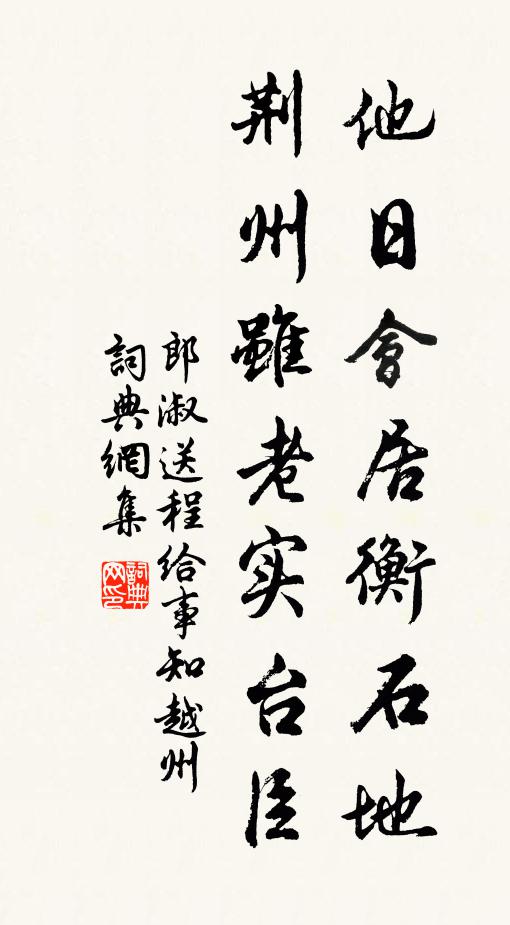 他日會居衡石地
荆州雖老实台臣
郎淑送程给事知越州
詞典網集
詞典
网印